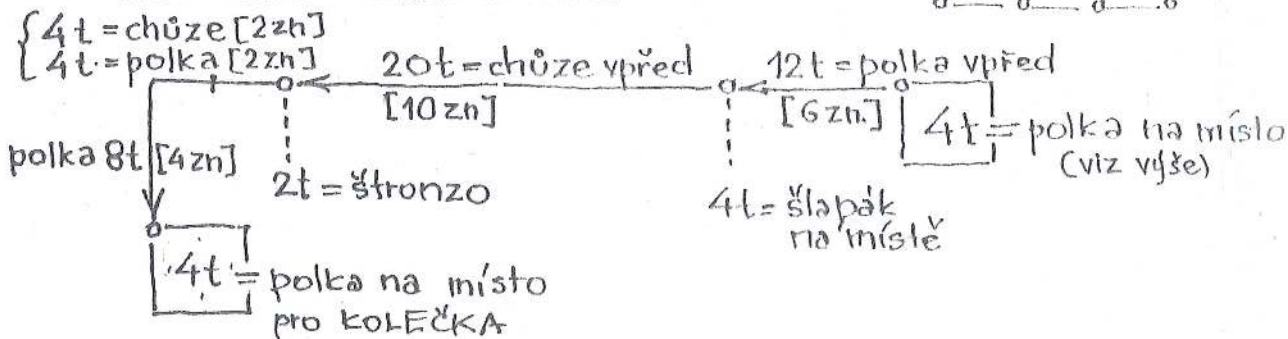 {4t = chůze [2zn]
{4t = polka [2zn]
20t = chůze vpřed
[10 zn]
12t = polka vpřed
[6 zn.]
4t = polka na místo
(viz výše)
polka 8t [4zn]
2t = štronzo
4t = šlapák
na místě
4t = polka na místo
pro KOLEČKA